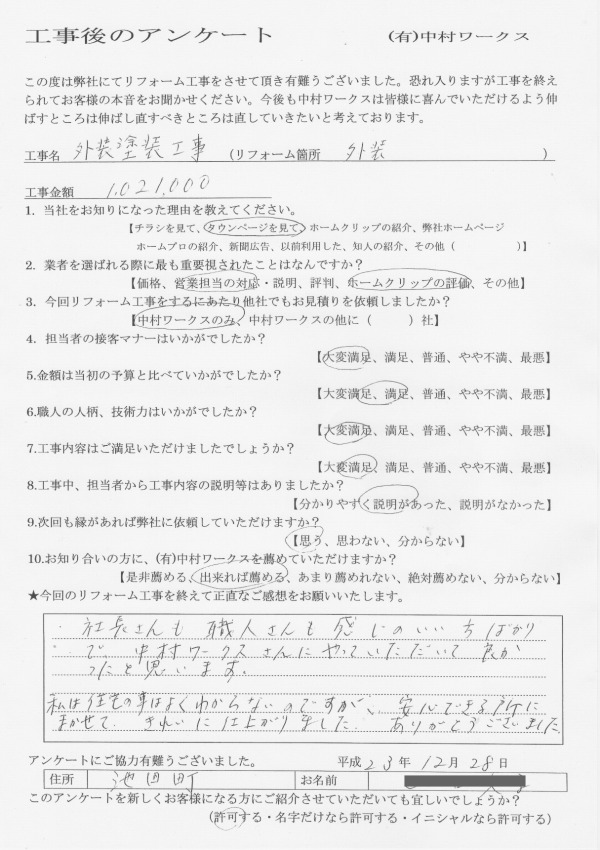 工事後のアンケート (有)中村ワークス
この度は弊社にてリフォーム工事をさせて頂き有難うございました。恐れ入りますが工事を終え
られてお客様の本音をお聞かせください。今後も中村ワークスは皆様に喜んでいただけるよう伸
ばすところは伸ばし直すべきところは直していきたいと考えております。
工事名 外装塗装工事 (リフォーム箇所 外装 )
工事金額 1,021,000
1. 当社をお知りになった理由を教えてください。
【チラシを見て、タウンページを見て、ホームクリップの紹介、弊社ホームページ
ホームプロの紹介、新聞広告、以前利用した、知人の紹介、その他( )】
2. 業者を選ばれる際に最も重要視されたことはなんですか?
【価格、営業担当の対応・説明、評判、ホームクリップの評価、その他】
3. 今回リフォーム工事をするにあたり他社でもお見積りを依頼しましたか?
【中村ワークスのみ、中村ワークスの他に( )社】
4. 担当者の接客マナーはいかがでしたか?
【大変満足、満足、普通、やや不満、最悪】
5.金額は当初の予算と比べていかがでしたか?
【大変満足、満足、普通、やや不満、最悪】
6.職人の人柄、技術力はいかがでしたか?
【大変満足、満足、普通、やや不満、最悪】
7.工事内容はご満足いただけましたでしょうか?
【大変満足、満足、普通、やや不満、最悪】
8.工事中、担当者から工事内容の説明等はありましたか?
【分かりやすく説明があった、説明がなかった】
9.次回も縁があれば弊社に依頼していただけますか?
【思う、思わない、分からない】
10.お知り合いの方に、(有)中村ワークスを薦めていただけますか?
【是非薦める、出来れば薦める、あまり薦めれない、絶対薦めない、分からない】
★今回のリフォーム工事を終えて正直なご感想をお願いいたします。
・社長さんも 職人さんも 感じのいい方ばかり
で、中村ワークスさんにやっていただいて 良か
ったと思います。
私は住宅の事はよくわからないのですが、安心できる所に
まかせて、きれいに仕上がりました。ありがとうございました。
アンケートにご協力有難うございました。 平成23年12月28日
住所 池田町 お名前
このアンケートを新しくお客様になる方にご紹介させていただいても宜しいでしょうか?
(許可する・名字だけなら許可する・イニシャルなら許可する)